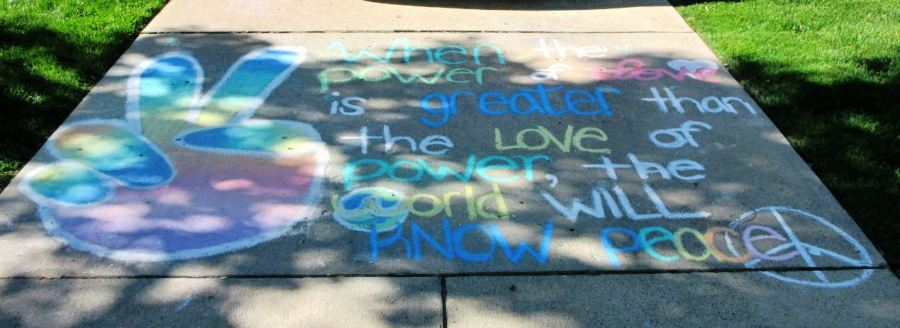 When the
power of love
is greater than
the LOVE of
power, the
world WILL
KNOW peace